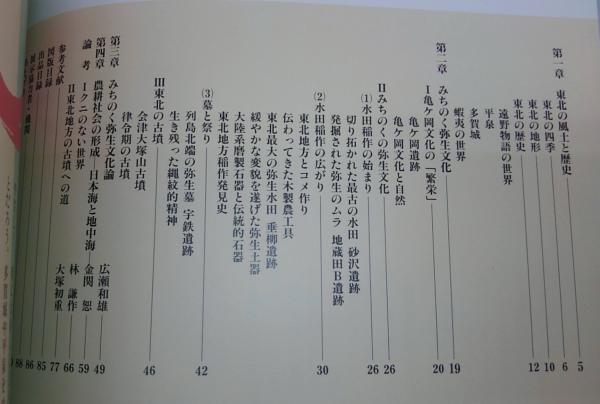 第一章 東北の風土と歴史 5
東北の四季 6
東北の地形 10
東北の歴史 12
遠野物語の世界
平泉
多賀城
蝦夷の世界
第二章 みちのく弥生文化 19
I 亀ヶ岡文化の「繁栄」 20
亀ヶ岡遺跡
亀ヶ岡文化と自然
IIみちのくの弥生文化 26
(1)水田稲作の始まり 26
切り拓かれた最古の水田 砂沢遺跡
発掘された弥生のムラ 地蔵田B遺跡
(2)水田稲作の広がり 30
東北地方とコメ作り
伝わってきた木製農工具
東北最大の弥生水田 垂柳遺跡
緩やかな変貌を遂げた弥生土器
大陸系磨製石器と伝統的石器
東北地方稲作発見史
(3)墓と祭り 42
列島北端の弥生墓 宇鉄遺跡
生き残った縄紋的精神
III東北の古墳 46
会津大塚山古墳
律令期の古墳
第三章 みちのく弥生文化論 広瀬和雄 49
第四章 農耕社会の形成―日本海と地中海― 金関 恕 59
論考 Iクニのない世界 林 謙作 66
II東北地方の古墳への道 大塚初重 77
参考文献 85
図版目録 86
出品目録 88